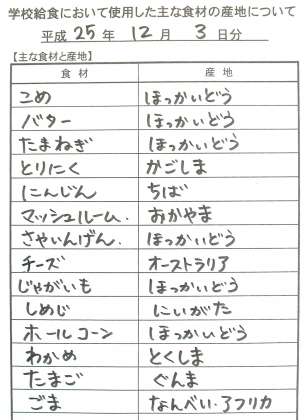 学校給食において使用した主な食材の産地について
平成 25 年 12 月 3 日分
【主な食材と産地】
食材 産地
こめ ほっかいどう
バター ほっかいどう
たまねぎ ほっかいどう
とりにく かごしま
にんじん ちば
マッシュルーム. おかやま
さやいんげん. ほっかいどう
チーズ オーストラリア
じゃがいも ほっかいどう
しめじ にいがた
ホールコーン ほっかいどう
わかめ とくしま
たまご ぐんま
ごま なんべい.アフリカ